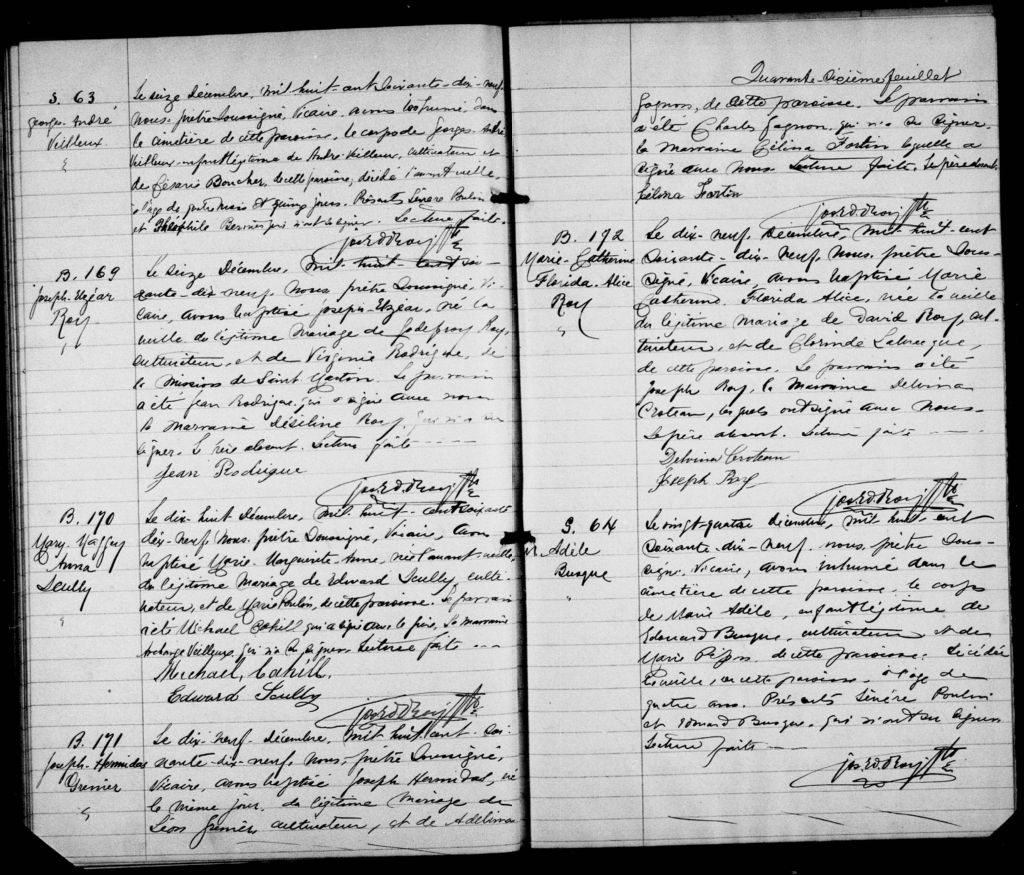 S. 63
Georges André
Veilleux
Le seize décembre, mil huit-cent soixante-dix-neuf
nous prêtre soussigné, Vicaire, avons inhumé, dans
le cimetière de cette paroisse, le corps de Georges André
Veilleux enfant légitime de André Veilleux, cultivateur et
de Césarie Boucher, de cette paroisse, décédé l'avant veille,
à l'âge de quatre mois et quinze jours. Présents Sénère Poulin
et Théophile qui n'ont su signer. Lecture faite.
Jos. Ed. Roy Ptre
B. 169
Joseph-Elzéar
Roy
Le seize Décembre, mil huit cent soi-
xante-dix neuf nous prêtre soussigné, Vi-
caire, avons baptisé Joseph-Elzéar, né la
veille du légitime mariage de Godefroy Roy,
cultivateur, et de Virginie Rodrigue, de
la mission de Saint Gaston. Le parrain
a été Jean Rodrigue, qui a signé avec nous
la marraine Déseline Roy, qui n'a su
signer. Le père absent. Lecture faite
Jean Rodrigue
Jos. Ed. Roy Ptre
B. 170
Mary Maggey
Anna
Scully
Le dix-huit Décembre, mil huit-cent soixante
dix-neuf nous prêtre soussigné, Vicaire, avons
baptisé Marie Marguerite Anne, née l'avant-veille,
du légitime mariage de Edward Scully, culti-
vateur, et de Marie Poulin, de cette paroisse. Le parrain
a été Michael Cahill qui a signé avec le père, La marraine
Archange Veilleux, qui n'a su signer. Lecture faite
Michael Cahill
Edward Scully
Jos. Ed. Roy Ptre
B. 171
Joseph-Hermidas
Grenier
Le dix-neuf décembre, mil huit cent soi-
xante-dix-neuf, nous, prêtre soussigné,
Vicaire, avons baptisé Joseph Hermidas, né
le même jour, du légitime mariage de
Léon Grenier cultivateur, et de Adelina
Quarante-sixième feuillet
Gagnon, de cette paroisse. Le parrain
a été Charles Gagnon, qui n'a su signer
la marraine Célina Fortin laquelle a
signé avec nous. Lecture faite. Le père absent.
Célina Fortin
Jos. Ed. Roy Ptre
B. 172
Marie-Catherine
Florida-Alice
Roy
Le dix-neuf Décembre, mil huit-cent
soixante-dix-neuf nous, prêtre sous-
signé, Vicaire, avons baptisé Marie
Catherine, Florida Alice, née la veille
du légitime mariage de David Roy, cul-
tivateur, et de Clorinde Labrecque,
de cette paroisse. Le parrain a été
Joseph Roy, la marraine Delvina
Croteau, lesquels ont signé avec nous
Le père absent. Lecture faite
Delvina Croteau
Joseph Roy
Jos. Ed. Roy Ptre
S. 64
M. Adèle
Busque
Le vingt-quatre décembre, mil huit-cent
soixante-dix-neuf nous, prêtre sous-
signé, Vicaire, avons inhumé dans le
cimetière de cette paroisse le corps
de Marie Adèle, enfant légitime de
Edouard Busque, cultivateur et de
Marie de cette paroisse, décédée
la veille, en cette paroisse à l'âge de
quatre ans. Présents Sénère Poulin
et Edouard Busque, qui n'ont su signer
Lecture faite
Jos. Ed. Roy Ptre